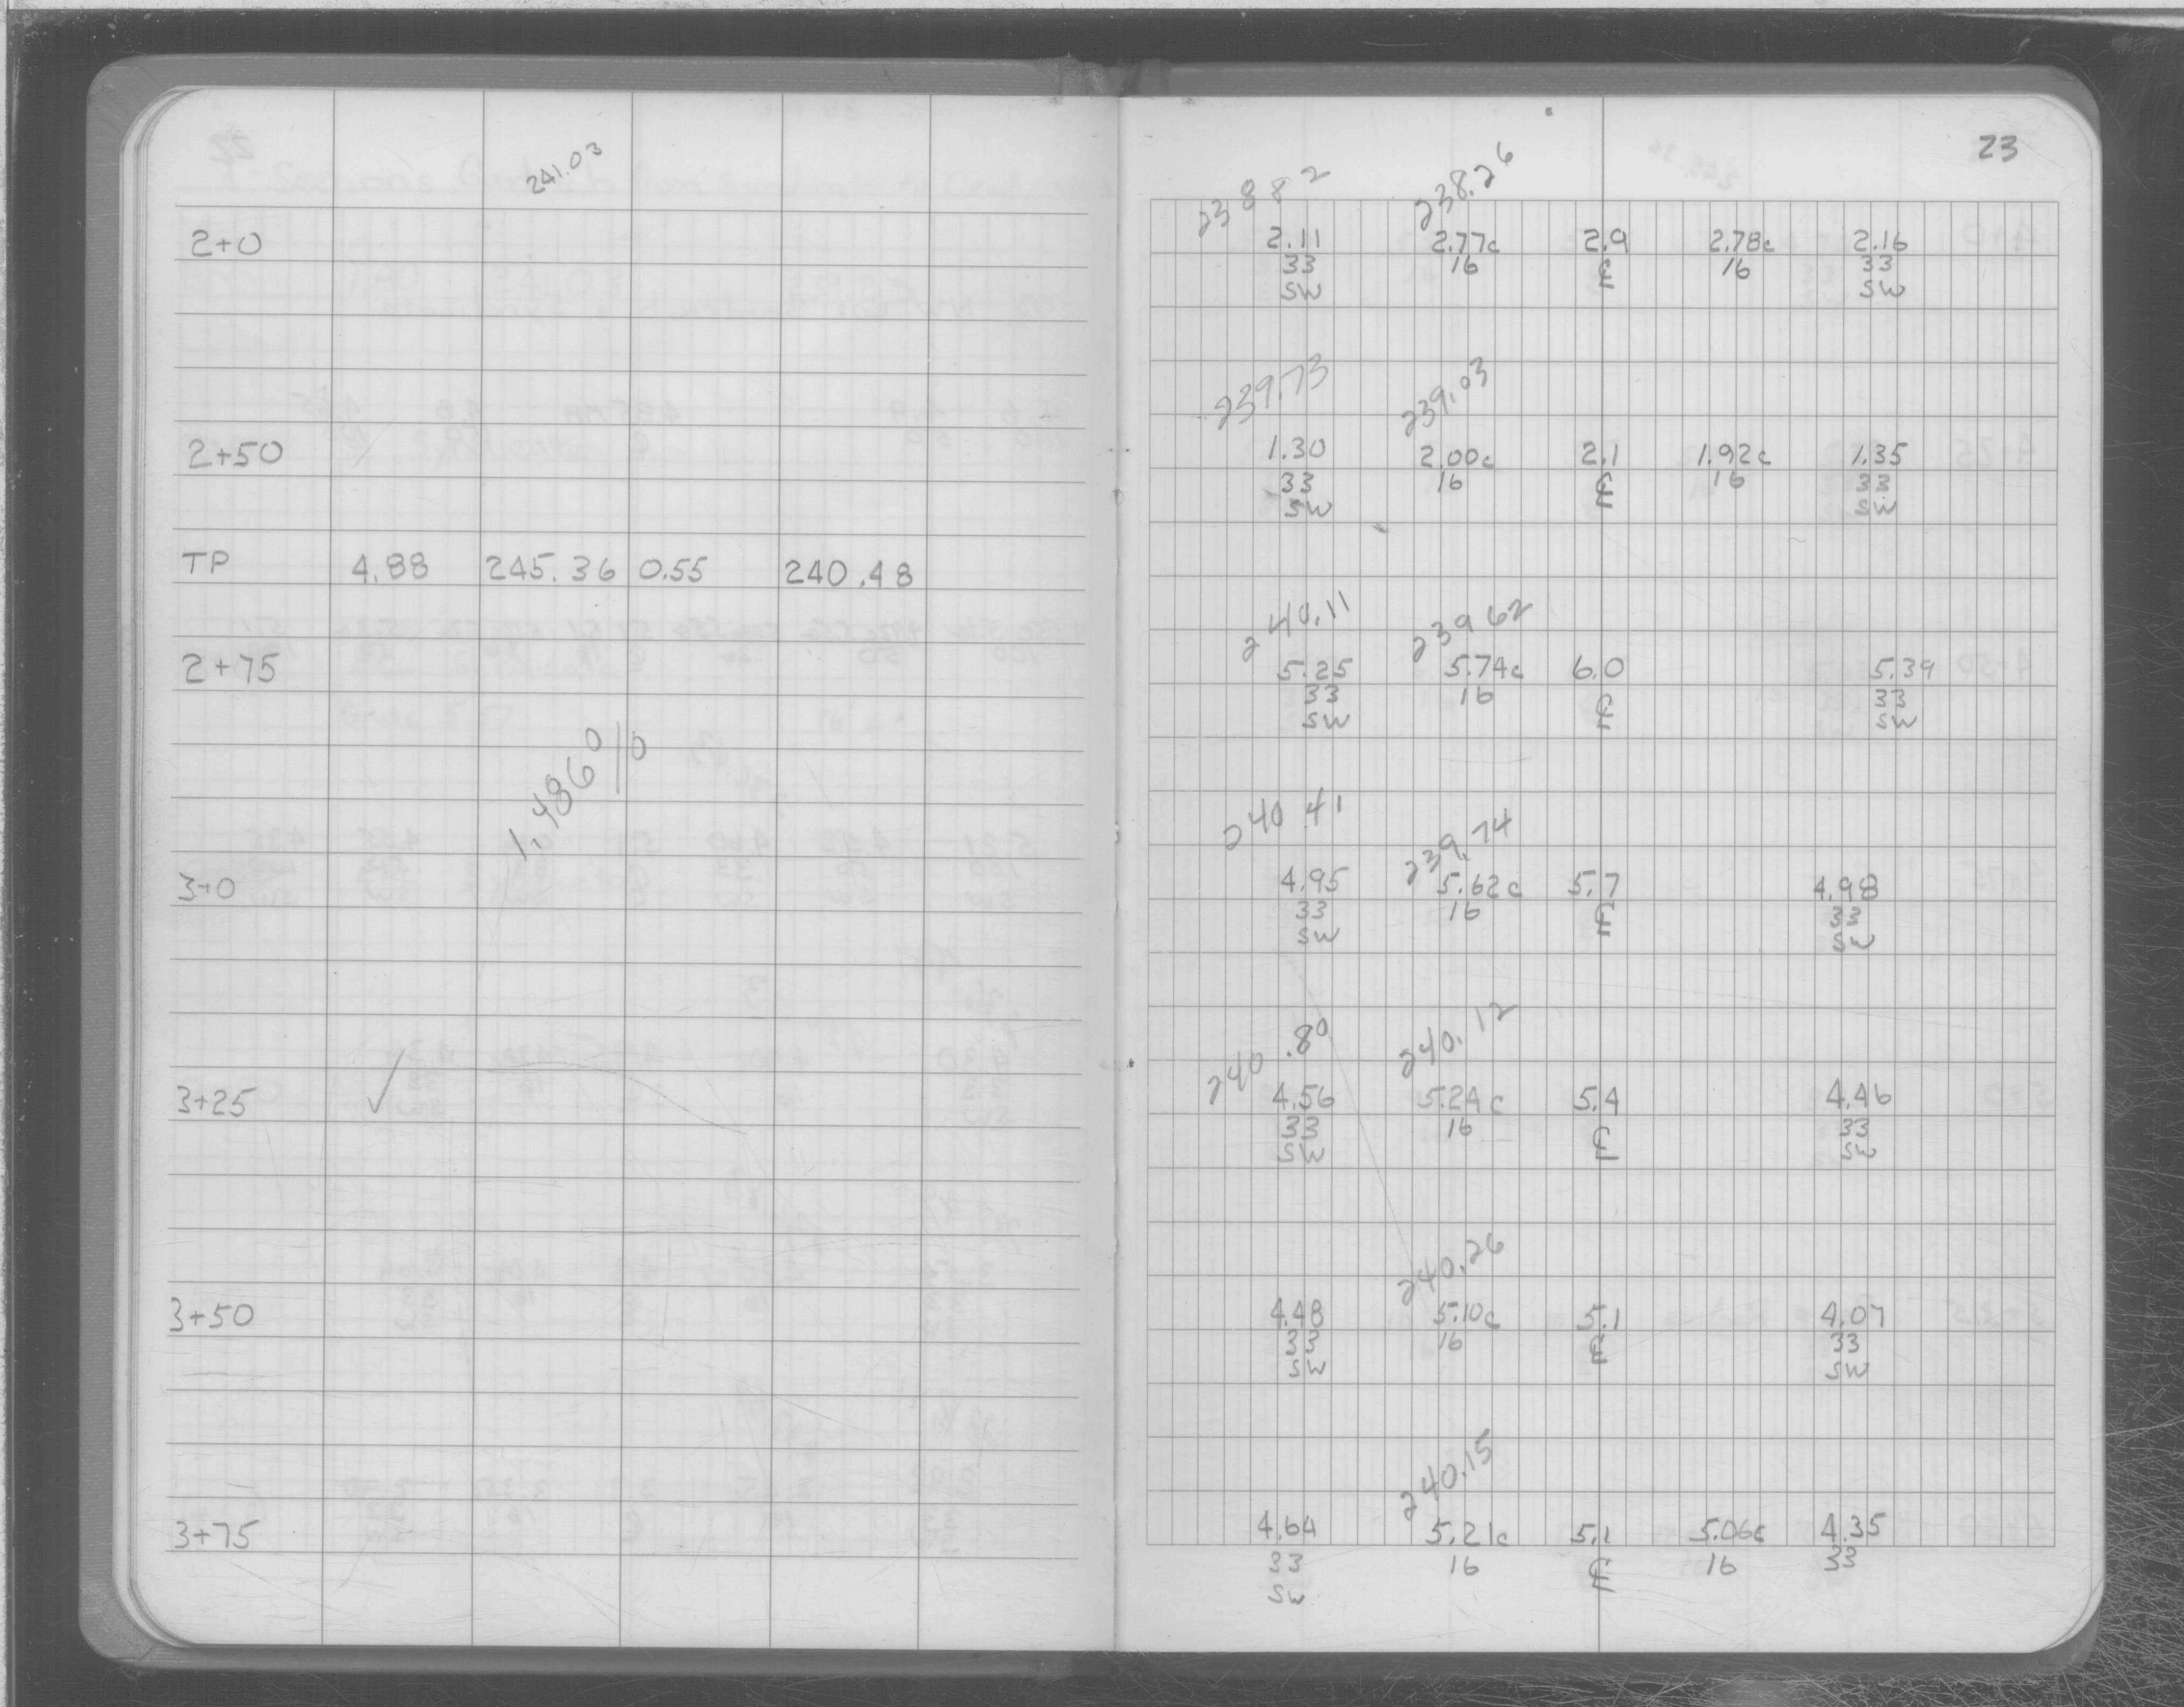 23
241.03
238.82 238.26
2+0 2.11 2.77c 2.9 2.78c 2.16
33 16 ℄ 16 33
SW SW
239.73 239.03
2+50 1.30 2.00c 2.1 1.92c 1.35
33 16 ℄ 16 33
SW SW
TP 4.88 245.36 0.55 240.48
240.11 239.62
2+75 5.25 5.74c 6.0 5.39
33 16 ℄ 33
SW SW
1.486%
240.41 239.74
3+0 4.95 5.62c 5.7 4.98
33 16 ℄ 33
SW SW
240.80 240.12
3+25 ✓ 4.56 5.24c 5.4 4.46
33 16 ℄ 33
SW SW
240.26
3+50 4.48 5.10c 5.1 4.07
33 16 ℄ 33
SW SW
240.15
3+75 4.64 5.21c 5.1 5.06c 4.35
33 16 ℄ 16 33
SW